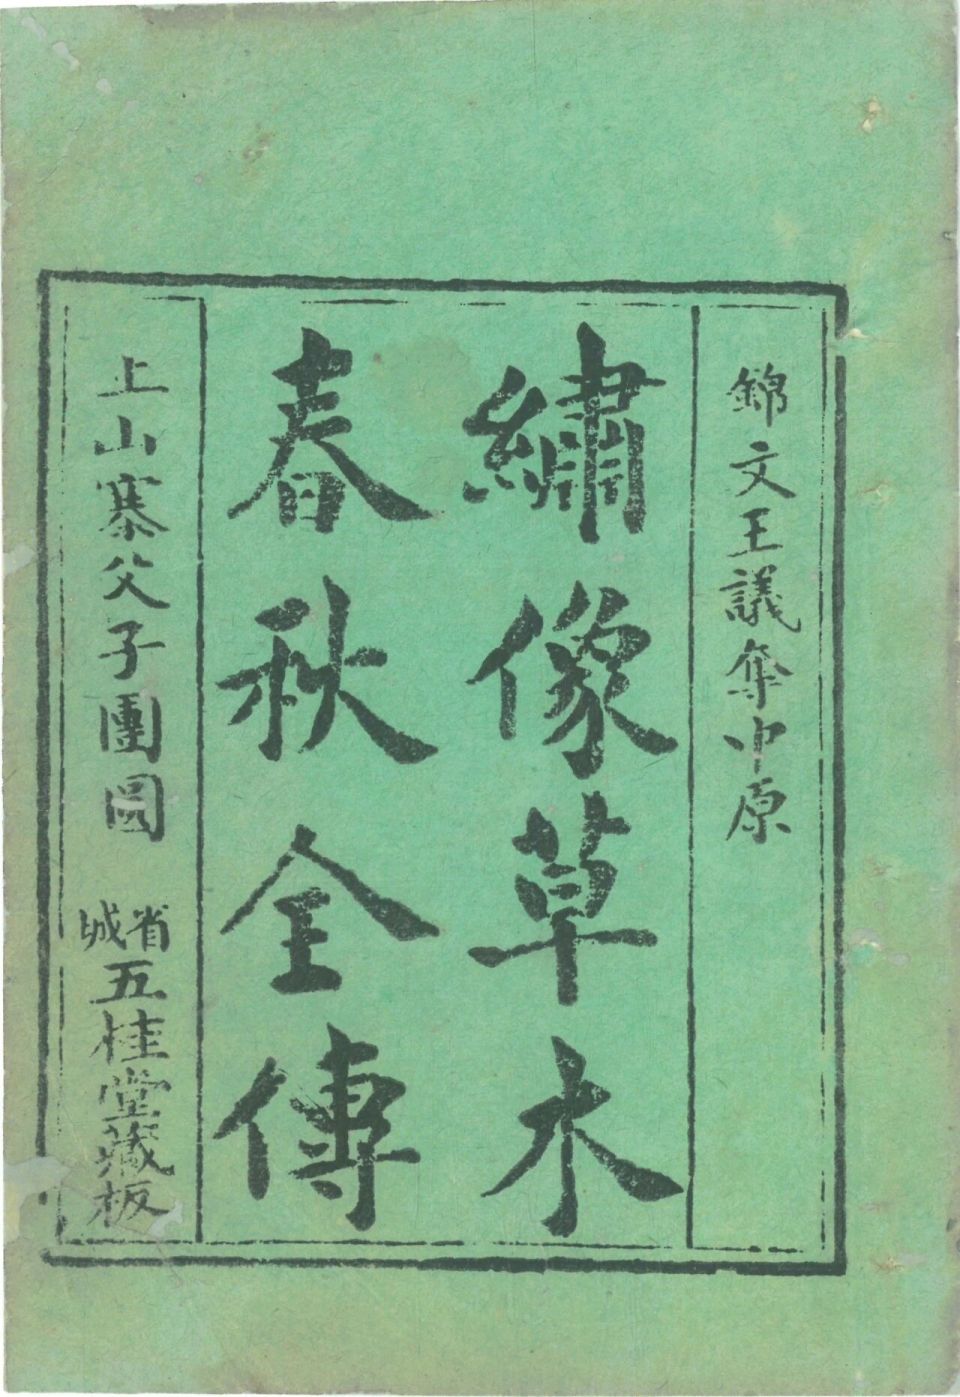 錦文王議奪中原
繡像草木
春秋全傳
上山寨父子團圓
省城五桂堂藏板